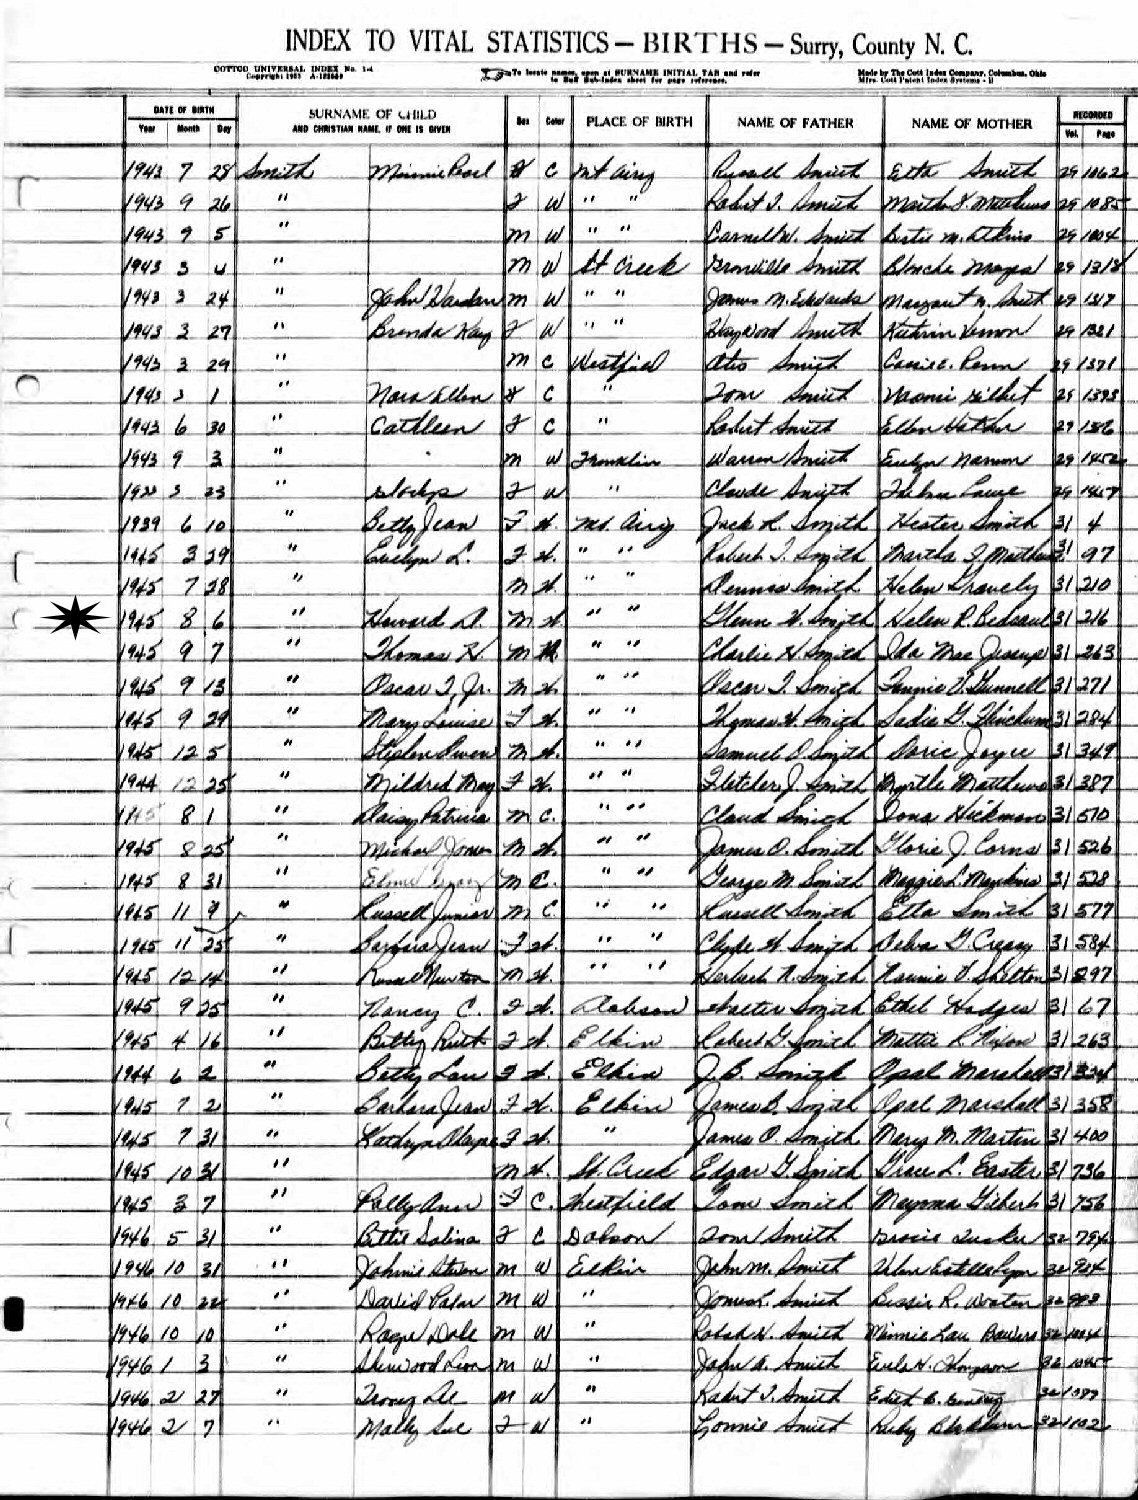 INDEX TO VITAL STATISTICS — BIRTHS — Surry, County N. C.
COTTCO UNIVERSAL INDEX No. 1-4
To locate names, open at SURNAME INITIAL TAB and refer
Made by The Cott Index Company, Columbus, Ohio
Copyright
to Buff Sub-Index sheet for page reference.
Mfrs. Cott Patent Index Systems
DATE OF BIRTH SURNAME OF CHILD Sex Color PLACE OF BIRTH NAME OF FATHER NAME OF MOTHER RECORDED
Year Month Day AND CHRISTIAN NAME, IF ONE IS GIVEN Vol. Page
1943 7 28 Smith Minnie Pearl F C Mt Airy Russell Smith Etta Smith 29 1062
1943 9 26 " F W " " Robert T. Smith Martha Matthews 29 1085
1943 9 5 " M W " " Carnell W. Smith Bertie M. Atkins 29 1004
1943 3 4 " M W St Creek Granville Smith Blanche 29 1318
1943 3 24 " John M W " " James N. Edwards Margaret N. Smith 29 1317
1943 3 27 " Brenda Kay F W " " Haywood Smith Kathrin Vernon 29 1321
1943 3 29 " M C Westfield Otis Smith Cassie E. Penn 29 1371
1943 1 " Nora Ellen F C " Tom Smith Naomi Gilbert 29 1393
1943 6 30 " Cathleen F C " Robert Smith Ellen 29
1943 9 3 " M W Franklin Warren Smith Evelyn 29 1452
23 " Gladys F W " Claude Smith Thelma Lowe 29 1457
1939 6 10 " Betty Jean F W. Mt. Airy Jack R. Smith Hester Smith 31 4
1945 3 29 " Evelyn L. F W. " " Robert T. Smith Martha Matthews 31 97
1945 7 28 " M W. " " Dennis Smith Helen Gravely 31 210
1945 8 6 " Howard D. M W. " " Glenn W. Smith Helen R. Bedsaul 31 216
1945 9 7 " Thomas H. M W. " " Charlie H. Smith Ida Mae Jessup 31 263
1945 9 13 " Oscar T, Jr. M W. " " Oscar T. Smith Fannie V. Gunnell 31 271
1945 9 29 " Mary Louise F W. " " Thomas H. Smith Sadie G. Flinchum 31 284
1945 12 5 " Stephen Owen M W. " " Samuel O. Smith Doric Joyce 31 349
1944 12 25 " Mildred May F W. " " Fletcher J. Smith Myrtle Matthews 31 387
1945 8 1 " Daisy Patricia M C. " " Claud Smith Iona Hickman 31 510
1945 8 25 " Michael James M W. " " James O. Smith Glorie J. Corns 31 526
1945 8 31 " M C. " " George M. Smith Maggie L. 31 528
1945 11 9 " Russell Junior M C. " " Russell Smith Etta Smith 31 577
1945 11 25 " Barbara Jean F W. " " Clyde W. Smith Delva G. Creasy 31 584
1945 12 14 " Newton M W. " " Herbert R. Smith Nannie V. Shelton 31
1945 9 25 " Nancy C. F W. Dobson Smith Ethel Hodges 31 67
1945 4 16 " Betty Ruth F W. Elkin Robert G. Smith Mattie R. Nixon 31 263
1944 6 2 " Betty Lou F W. Elkin J. B. Smith Opal Marshall 31
1945 7 2 " Barbara Jean F W. Elkin James B. Smith Opal Marshall 31 358
1945 7 31 " Kathryn F W. " James O. Smith Mary M. Martin 31 400
1945 10 31 " M W. St. Creek Edgar G. Smith Grace L. Easter 31 736
1945 3 7 " Polly Ann F C. Westfield Tom Smith Gilbert 31 756
1946 5 31 " Bettie Salina F C Dobson Tom Smith Tucker 32 794
1946 10 31 " Johnie Steven M W Elkin John M. Smith Velna Estelle 32
1946 10 22 " David M W " James L. Smith Bessie R. Wooten 32
1946 10 10 " Roger Dale M W " Smith Minnie Lou Bowers 32
1946 1 3 " Sherwood Leon M W " John A. Smith 32
1946 2 27 " M W " Robert T. Smith 32
1946 2 7 " Molly Sue F W " Lonnie Smith Ruby Blackburn 32 1102